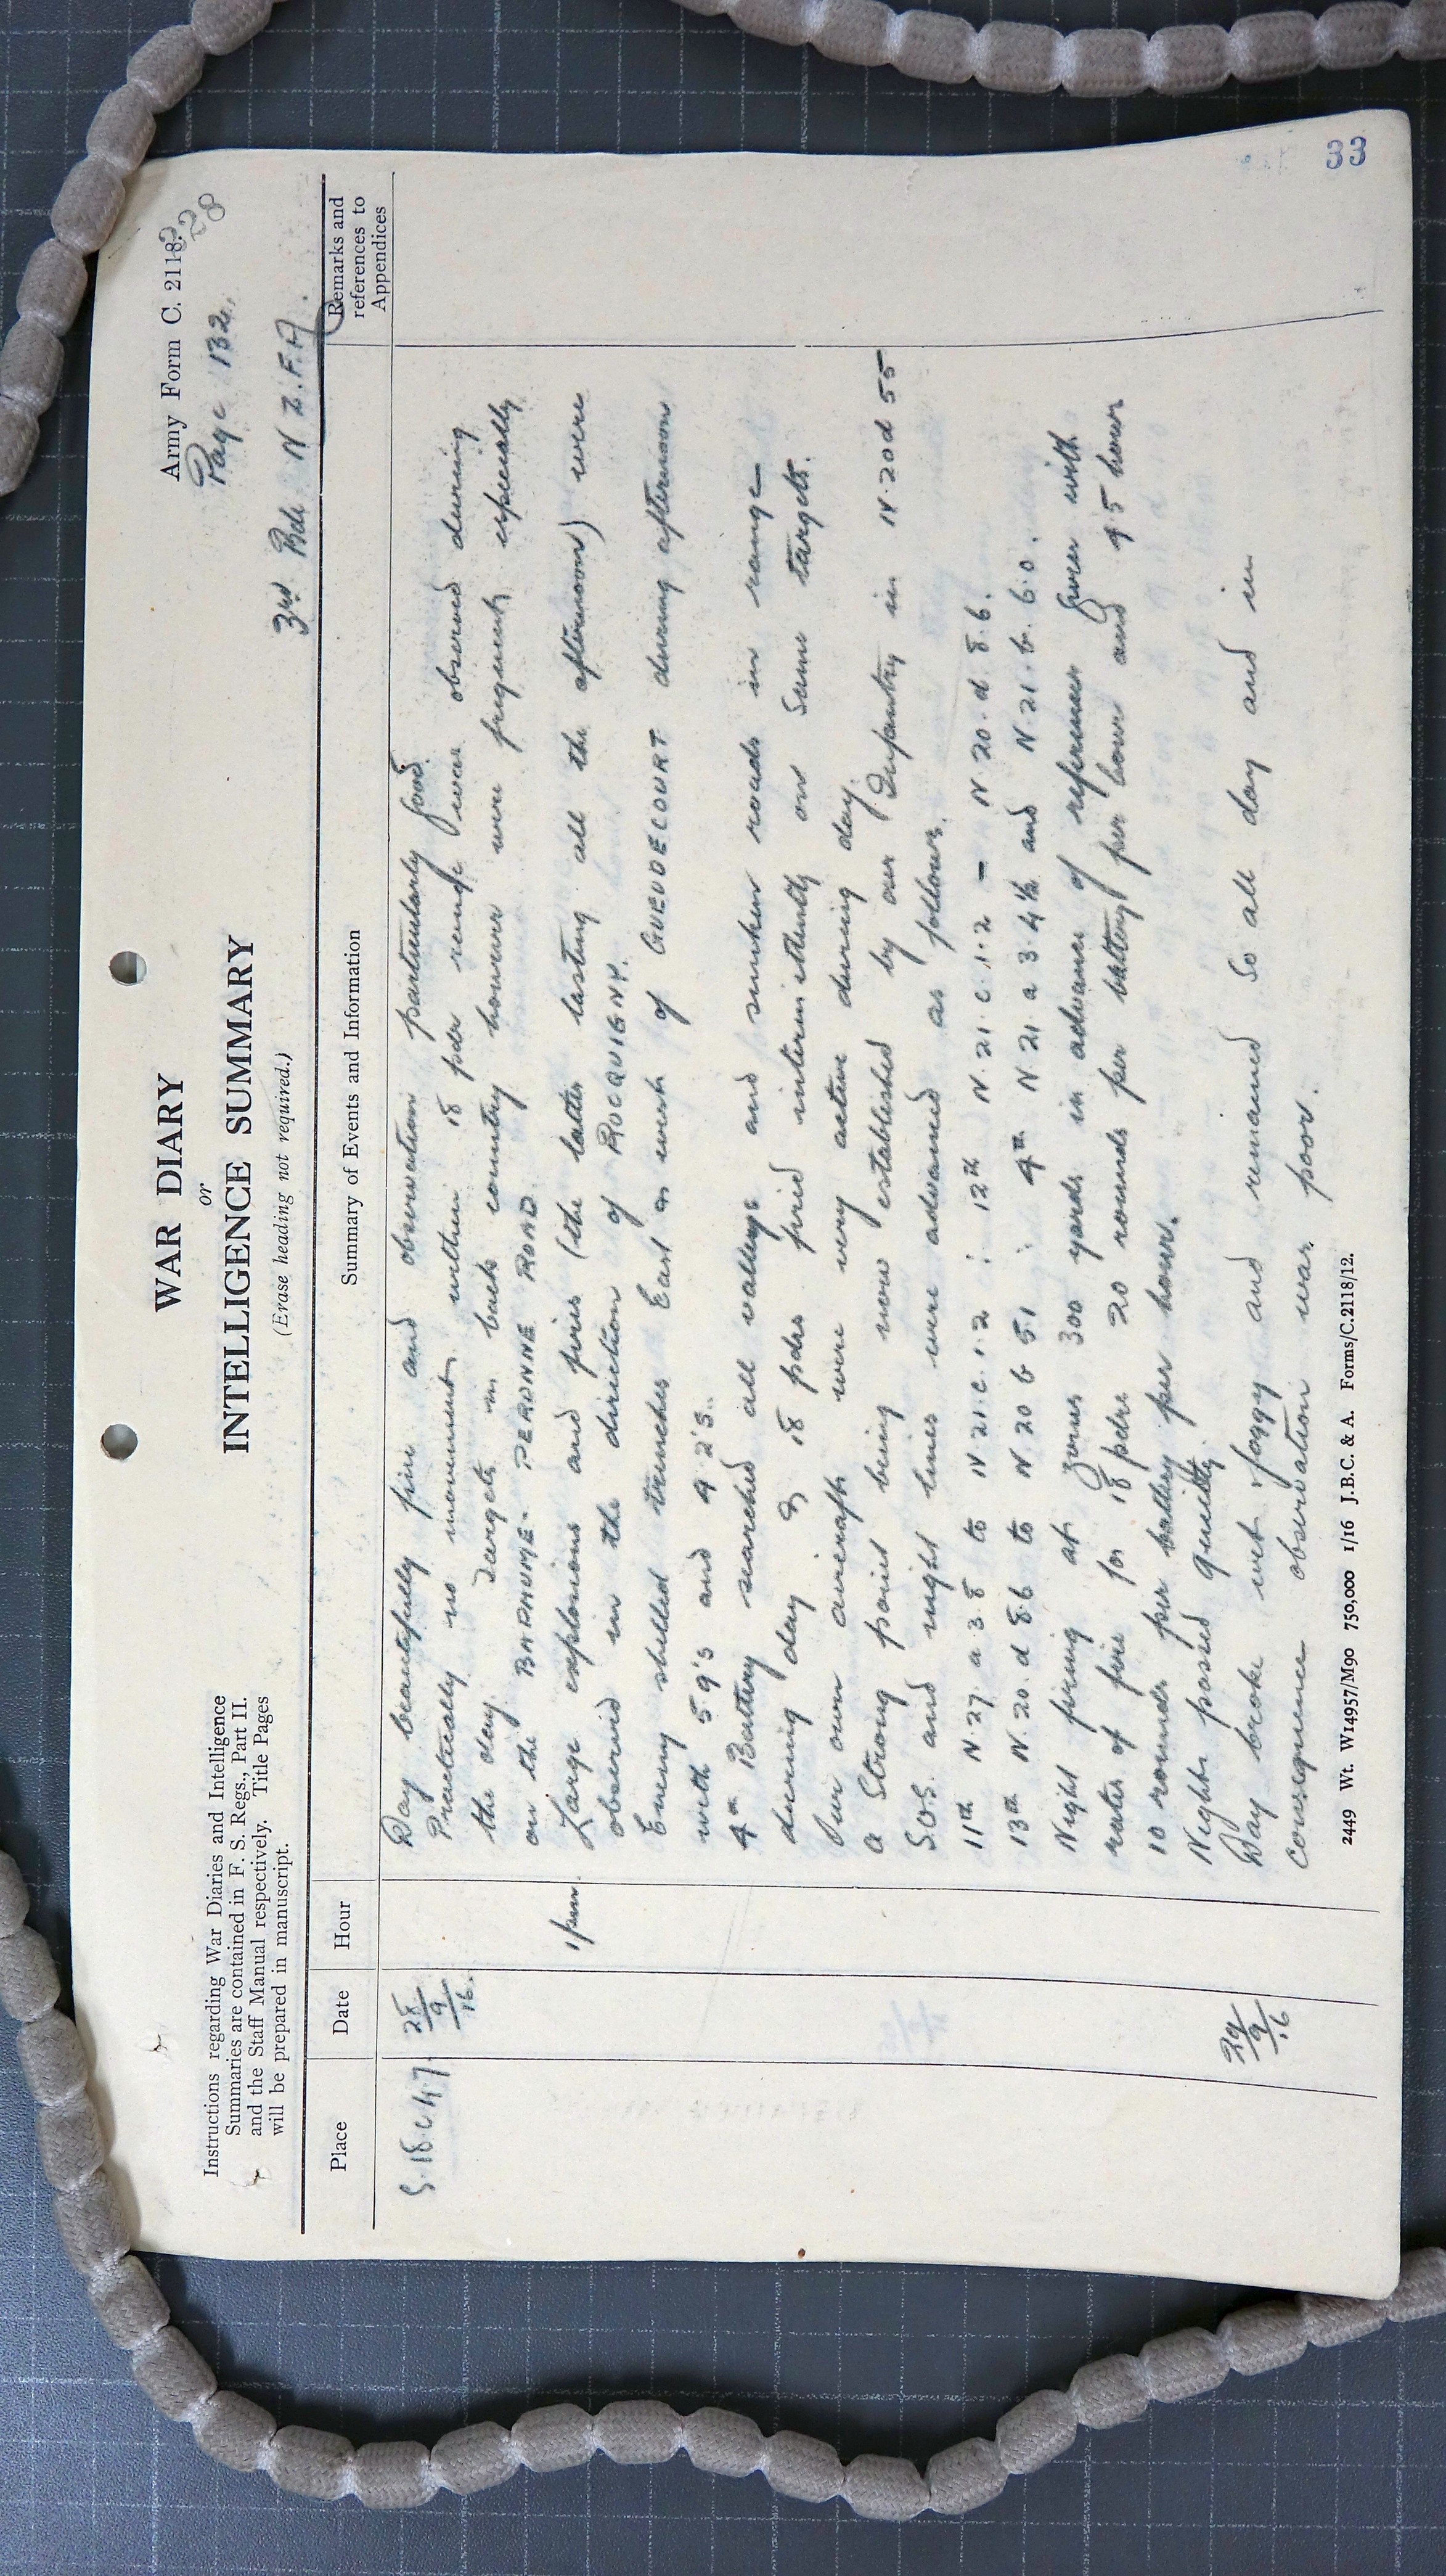 Army Form C. 2118.
228
Page 132.
3rd Bde N.Z.F.A.
WAR DIARY
or
INTELLIGENCE SUMMARY
(Erase heading not required.)
Instructions regarding War Diaries and Intelligence
Summaries are contained in F. S. Regs., Part II.
and the Staff Manual respectively. Title Pages
will be prepared in manuscript.
Place Date Hour Summary of Events and Information Remarks and references to Appendices
S.18.c.4.7. 28/9/16. Day beautifully fine and observation particularly good.
Practically no movement within 18 pdr range was observed during
the day. Targets in back country however were frequent especially
on the BAPAUME - PERONNE ROAD.
1pm. Large explosions and fires (the latter lasting all the afternoon) were
observed in the direction of ROCQUIGNY.
Enemy shelled trenches East as well of GUEUDECOURT during afternoon
with 5.9's and 4.2's.
4th Battery searched all valleys and sunken roads in range
during day & 18 pdrs fired intermittently on same targets.
Our own aircraft were very active during day.
a Strong point being now established by our Infantry in N.20d 55
S.O.S. and night lines were advanced as follows.
11th N.27.a 3.8 to N.21.c.1.2 : 12th N.21.c.1.2 - N.20.d.8.6.
13th N.20.d 86 to N.20 b 51 : 4th N.21 a 3.4½ and N.21.b.6.0.
Night firing at zones 300 yards in advance of references given with
rates of fire for 18 pdrs 20 rounds per battery per hour and 4.5 hows
10 rounds per battery per hour.
Night passed quietly.
29/9/16 Day broke wet foggy and remained so all day and in
consequence observation was poor.
2449 Wt. W14957/M90 750,000 1/16 J.B.C. & A. Forms/C.2118/12.
33